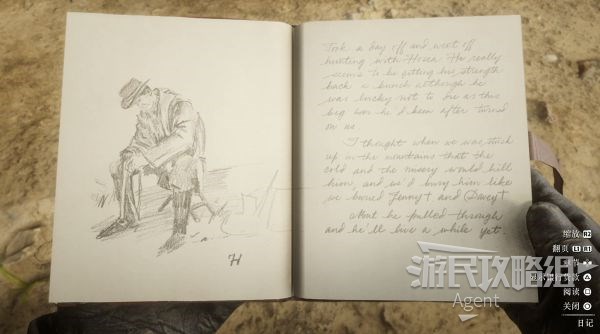 Took a day off and went off
hunting with Hosea. He really
seems to be getting his strength
back a bunch although he
was lucky not to die as this
big bear he'd been after turned
on us.
I thought when we was stuck
up in the mountains that the
cold and the misery would kill
him, and we'd bury him like
we buried Jenny† and Davey†
But he pulled through
and he'll live a while yet.
H
缩放 R2
翻页 L1 R1
阅读
关闭
日记
游民攻略组
Agent